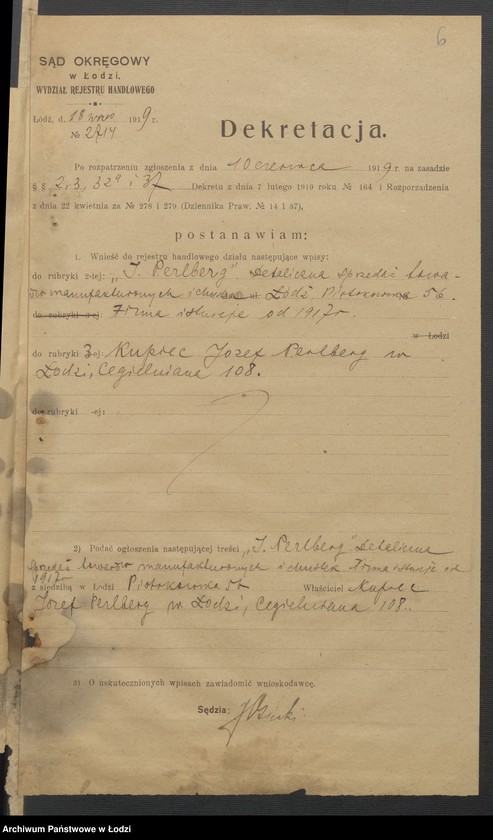 6
SĄD OKRĘGOWY
w Łodzi,
WYDZIAŁ REJESTRU HANDLOWEGO
Łódź, d. 18 1919 r.
№ 2714
Dekretacja.
Po rozpatrzeniu zgłoszenia z dnia 10 czerwca 1919 r. na zasadzie
§ § 2, 3, 32a i 37 Dekretu z dnia 7 lutego 1919 roku № 164 i Rozporządzenia
z dnia 22 kwietnia za № 278 i 279 (Dziennika Praw. № 14 i 37),
postanawiam:
1. Wnieść do rejestru handlowego działu następujące wpisy:
do rubryki 2-iej: „J. Perlberg" Detaliczna sprzedaż towa-
rów manufakturowych i chustek Łódź, Piotrkowska 56.
do rubryki 3-ej: Firma istnieje od 1917 r.
w Łodzi
do rubryki 3-ej: Kupiec Jozef Perlberg w
Łodzi, Cegielniana 108.
do rubryki -ej:
2) Podać ogłoszenia następującej treści „J. Perlberg" Detaliczna
sprzedaż towarów manufakturowych i chustek Firma istnieje od
1917 r
z siedzibą w Łodzi Piotrkowska 56 Właściciel Kupiec
Jozef Perlberg w Łodzi, Cegielniana 108.
3) O uskutecznionych wpisach zawiadomić wnioskodawcę.
Sędzia:
Archiwum Państwowe w Łodzi